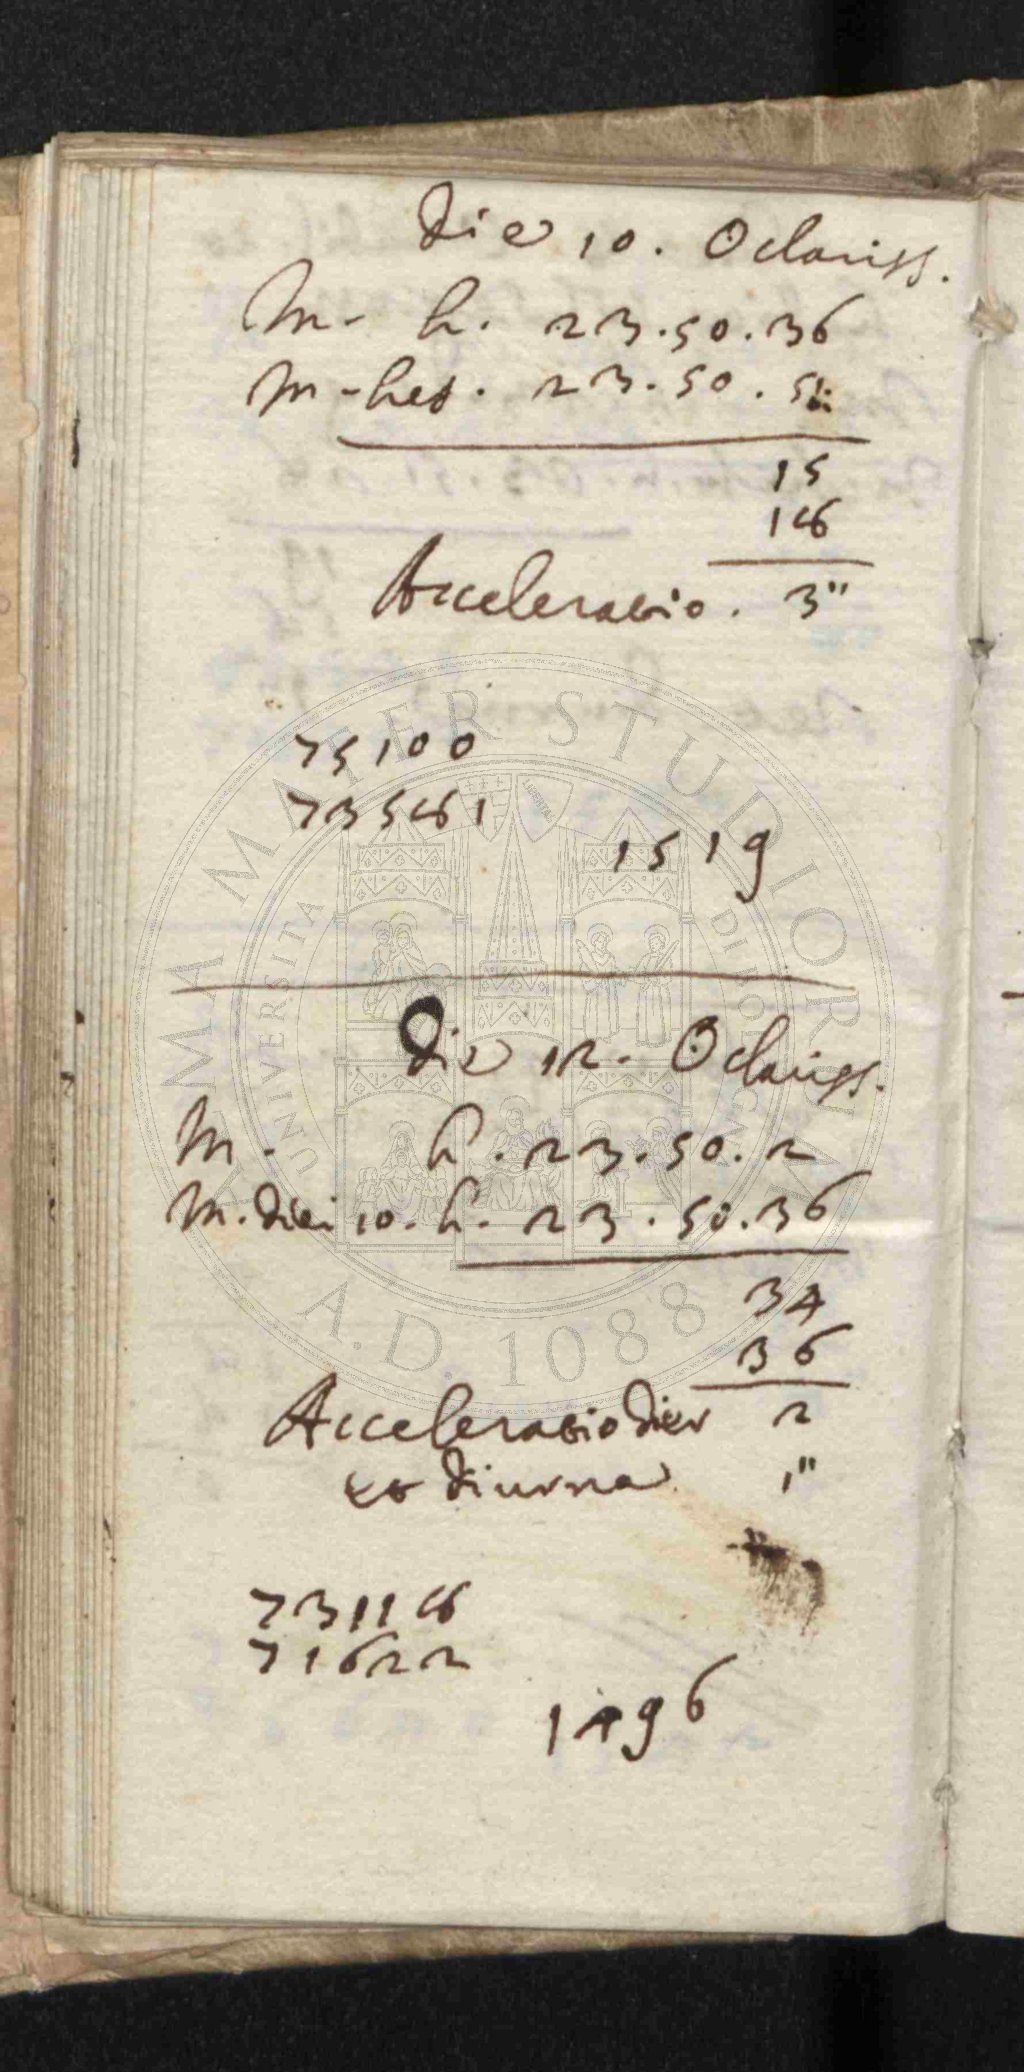 Die 10. ☉ clariss.
M. h. 23.50.36
M. het. 23.50.51
15
18
Acceleratio. 3"
75100
73581
1519
Die 12. ☉ clariss.
M. h. 23.50.2
M. diei 10. h. 23.50.36
34
36
Acceleratio dier 2
et diurna 1"
73118
71622
1496
ALMA MATER STUDIORUM
UNIVERSITA DI BOLOGNA
A.D. 1088